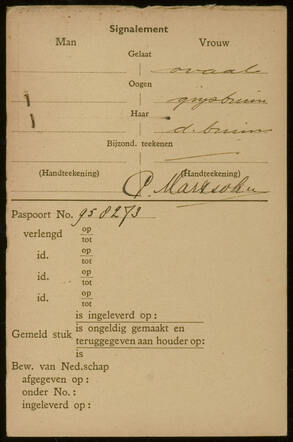 Signalement
Man Vrouw
Gelaat
ovaal
Oogen
grysbruin
Haar
d. bruin
Bijzond. teekenen
(Handteekening) (Handteekening)
P.
Paspoort No. 958273
verlengd op
tot
id. op
tot
id. op
tot
id. op
tot
is ingeleverd op:
Gemeld stuk is ongeldig gemaakt en
teruggegeven aan houder op:
is
Bew. van Ned.schap
afgegeven op:
onder No.:
ingeleverd op: